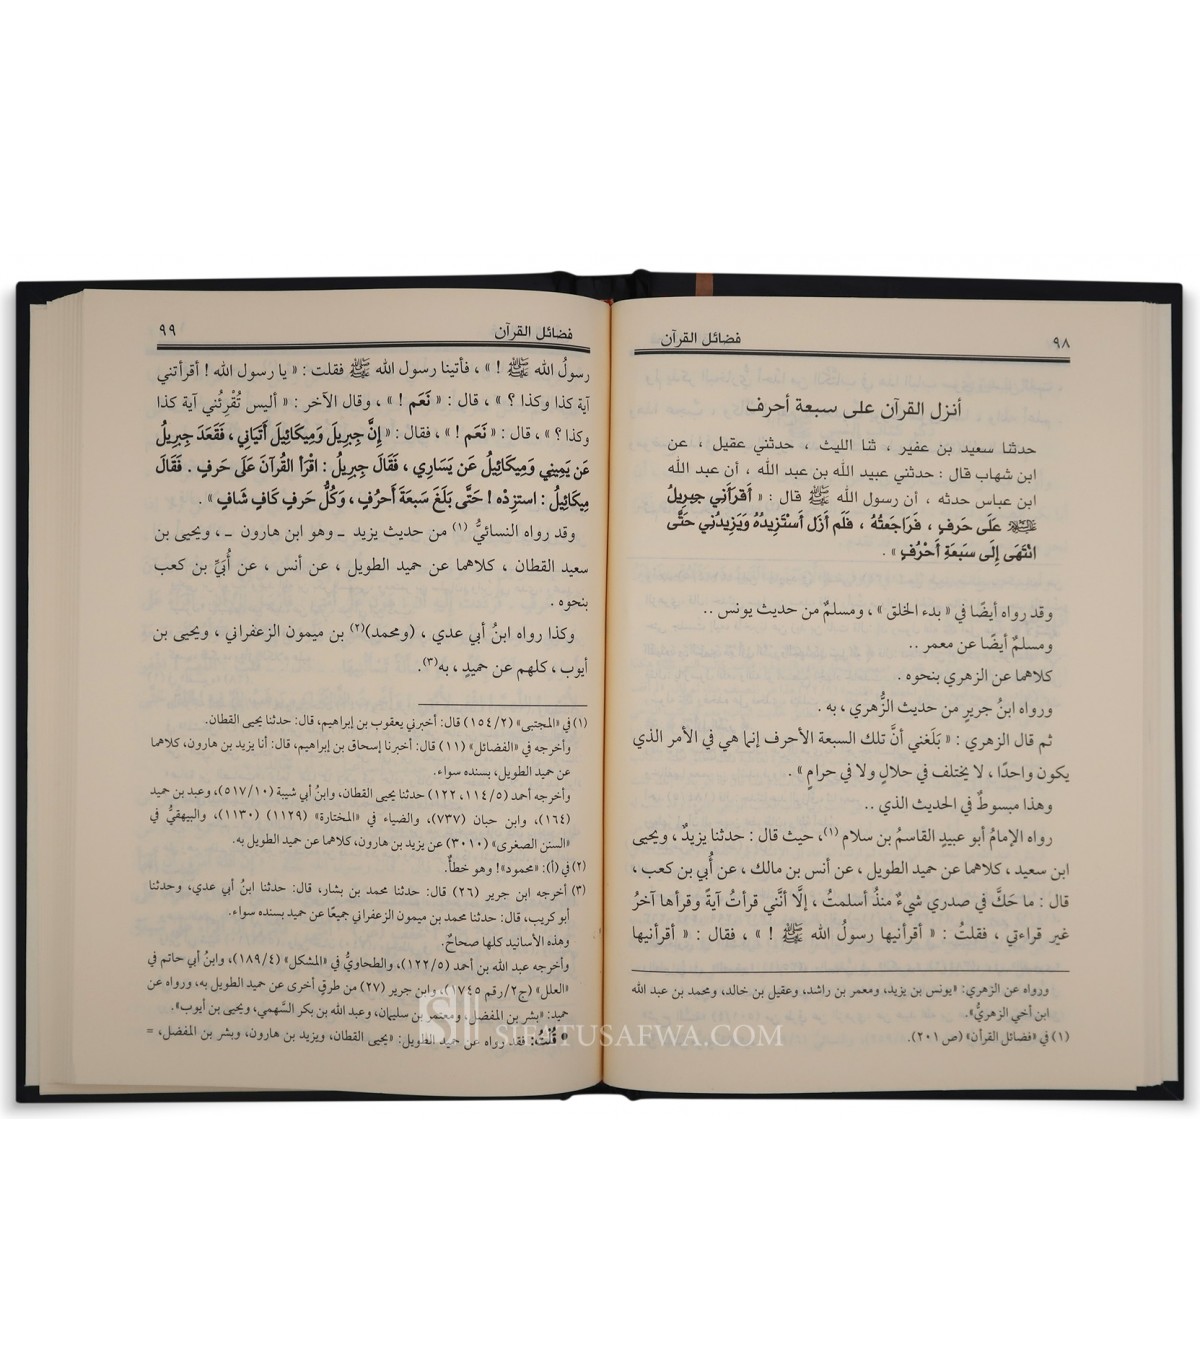 ٩٨ فضائل القرآن
أنزل القرآن على سبعة أحرف
حدثنا سعيد بن عفير ، ثنا الليث ، حدثني عقيل ، عن
ابن شهاب قال : حدثني عبيد الله بن عبد الله ، أن عبد الله
ابن عباس حدثه ، أن رسول الله ﷺ قال : « أَقرَأَنِي جِبرِيلُ
عَلَى حَرفٍ ، فَرَاجَعتُهُ ، فَلَم أَزَل أَستَزِيدُهُ وَيَزِيدُنِي حَتَّى
انْتَهَى إِلَى سَبعَةِ أَحْرُفٍ » .
وقد رواه أيضًا في « بدء الخلق » ، ومسلمٌ من حديث يونس ..
ومسلمٌ أيضًا عن معمر ..
كلاهما عن الزهري بنحوه .
ورواه ابنُ جريرٍ من حديث الزُّهري ، به .
ثم قال الزهري : « بَلَغني أنَّ تلك السبعة الأحرف إنما هي في الأمر الذي
يكون واحدًا ، لا يختلف في حلالٍ ولا في حرامٍ » .
وهذا مبسوطٌ في الحديث الذي ..
رواه الإمامُ أبو عبيدٍ القاسمُ بن سلام (١)، حيث قال : حدثنا يزيدُ ، ويحيى
ابن سعيد ، كلاهما عن حميد الطويل ، عن أنس بن مالك ، عن أُبي بن كعب ،
قال : ما حَكَّ في صدري شيءٌ منذُ أسلمتُ ، إلَّا أنَّني قرأتُ آيةً وقرأها آخرُ
غير قراءتي ، فقلتُ : « أقرأنيها رسولُ الله ﷺ ! » ، فقال : « أقرأنيها
ورواه عن الزهري: «يونس بن يزيد، ومعمر بن راشد، وعقيل بن خالد، ومحمد بن عبد الله
ابن أخي الزهريُّ».
(١) في «فضائل القرآن» (ص ٢٠١).
فضائل القرآن ٩٩
رسولُ الله ﷺ ! » ، فأتينا رسول الله ﷺ فقلت : « يا رسول الله ! أقرأتني
آية كذا وكذا ؟ » ، قال : « نَعَم ! » ، وقال الآخر : « أليس تُقْرِئُني آية كذا
وكذا ؟ » ، قال : « نَعَم ! » ، فقال : « إِنَّ جِبرِيلَ وَمِيكَائِيلَ أَتَيَانِي ، فَقَعَدَ جِبرِيلُ
عَن يَمِينِي وَمِيكَائِيلُ عَن يَسَارِي ، فَقَالَ جِبرِيلُ : اقْرَأ القُرآنَ عَلَى حَرفٍ . فَقَالَ
مِيكَائِيلُ : استَزِدْه ! حَتَّى بَلَغَ سَبعَةَ أَحرُفٍ ، وَكُلُّ حَرفٍ كَافٍ شَافٍ » .
وقد رواه النسائيُّ (١) من حديث يزيد ـ وهو ابن هارون ـ ، ويحيى بن
سعيد القطان ، كلاهما عن حميد الطويل ، عن أنس ، عن أُبَيِّ بن كعب
بنحوه .
وكذا رواه ابنُ أبي عدي ، (ومحمد)(٢) بن ميمون الزعفراني ، ويحيى بن
أيوب ، كلهم عن حميدٍ ، به(٣).
(١) في «المجتبى» (١٥٤/٢) قال: أخبرني يعقوب بن إبراهيم، قال: حدثنا يحيى القطان.
وأخرجه في «الفضائل» (١١) قال: أخبرنا إسحاق بن إبراهيم، قال: أنا يزيد بن هارون، كلاهما
عن حميد الطويل، بسنده سواء.
وأخرجه أحمد (١١٤/٥، ١٢٢) حدثنا يحيى القطان، وابنُ أبي شيبة (٥١٧/١٠)، وعبد بن حميد
(١٦٤)، وابن حبان (٧٣٧)، والضياء في «المختارة» (١١٢٩) (١١٣٠)، والبيهقيُّ في
«السنن الصغرى» (٣٠١٠) عن يزيد بن هارون، كلاهما عن حميد الطويل به.
(٢) في (أ): «محمود»! وهو خطأٌ.
(٣) أخرجه ابن جرير (٢٦) قال: حدثنا محمد بن بشار، قال: حدثنا ابنُ أبي عدي، وحدثنا
أبو كريب، قال: حدثنا محمد بن ميمون الزعفراني جميعًا عن حميد بسنده سواء.
وهذه الأسانيد كلها صحاحٌ.
وأخرجه عبد الله بن أحمد (١٢٢/٥)، والطحاويُّ في «المشكل» (١٨٩/٤)، وابنُ أبي حاتم في
«العلل» (ج٢/رقم ١٧٤٥)، وابن جرير (٢٧) من طرقٍ أخرى عن حميد الطويل به، ورواه عن
حميد: «بشر بن المفضل، ومعتمر بن سليمان، وعبد الله بن بكر السَّهمي، ويحيى بن أيوب».
• قُلتُ: فقد رواه عن حميد الطويل: «يحيى القطان، ويزيد بن هارون، وبشر بن المفضل، =
SIFATUSAFWA.COM